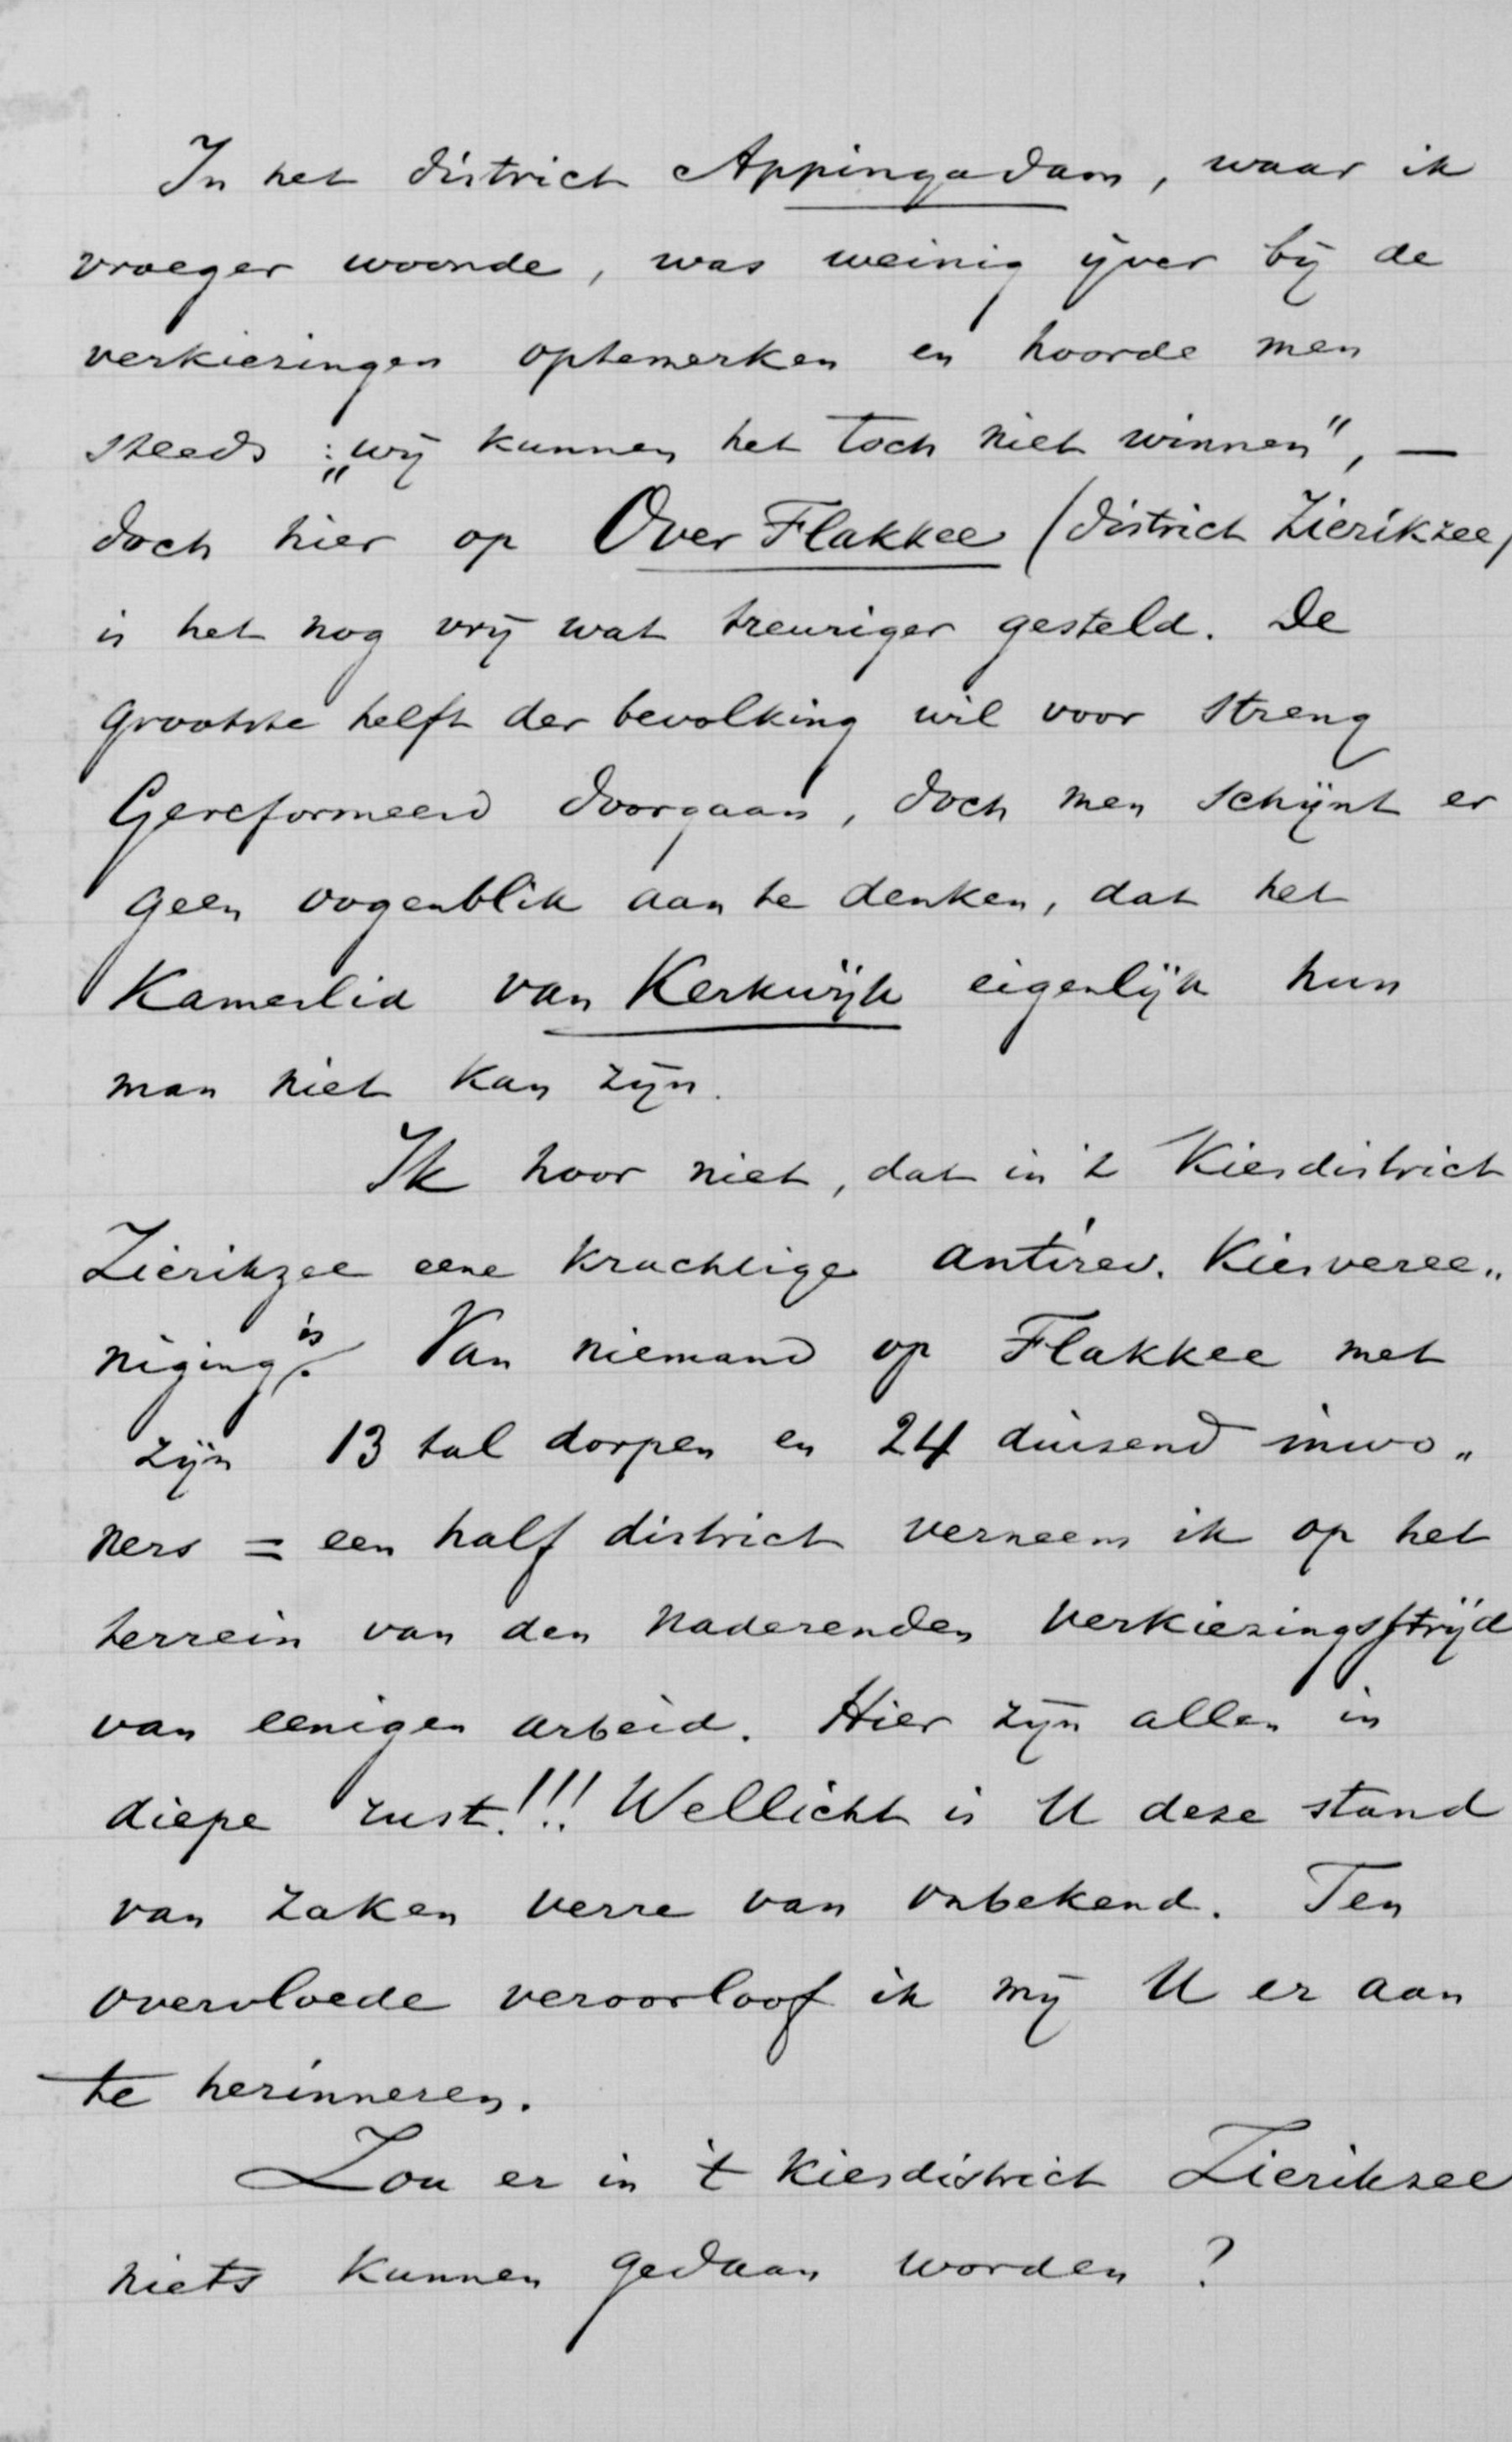 In het district Appingadam, waar ik
vroeger woonde, was weinig ijver bij de
verkiezingen optemerken en hoorde men
steeds : „wij kunnen het toch niet winnen", —
doch hier op Over Flakkee (district Zierikzee)
is het nog vrij wat treuriger gesteld. De
grootste helft der bevolking wil voor streng
Gereformeerd doorgaan, doch men schijnt er
geen oogenblik aan te denken, dat het
Kamerlid van Kerkwijk eigenlijk hun
man niet kan zijn.
Ik hoor niet, dat in 't Kiesdistrict
Zierikzee eene krachtige antirev. Kiesveree„
niging is. Van niemand op Flakkee met
zijn 13 tal dorpen en 24 duizend inwo„
ners = een half district verneem ik op het
terrein van den naderenden verkiezingsstrijd
van eenigen arbeid. Hier zijn allen in
diepe rust!!! Wellicht is U deze stand
van zaken verre van onbekend. Ten
overvloede veroorloof ik mij U er aan
te herinneren.
Zou er in 't Kiesdistrict Zierikzee
niets kunnen gedaan worden ?